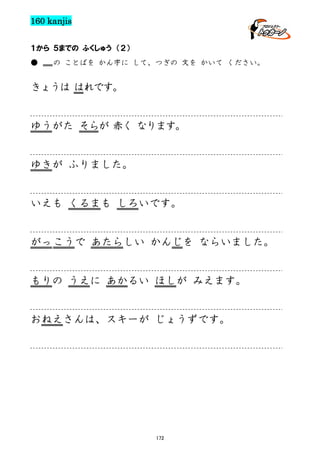 160 kanjis
プロジェクト
１から ５までの ふくしゅう （２）
● ＿の ことばを かん字に して、つぎの 文を かいて ください。
きょうは はれです。
ゆうがた そらが 赤く なります。
ゆきが ふりました。
いえも くるまも しろいです。
がっこうで あたらしい かんじを ならいました。
もりの うえに あかるい ほしが みえます。
おねえさんは、スキーが じょうずです。
172